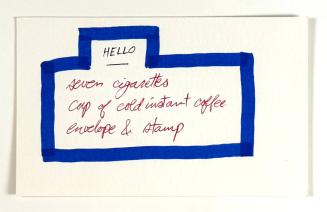 HELLO
seven cigarettes
cup of cold instant coffee
envelope & stamp